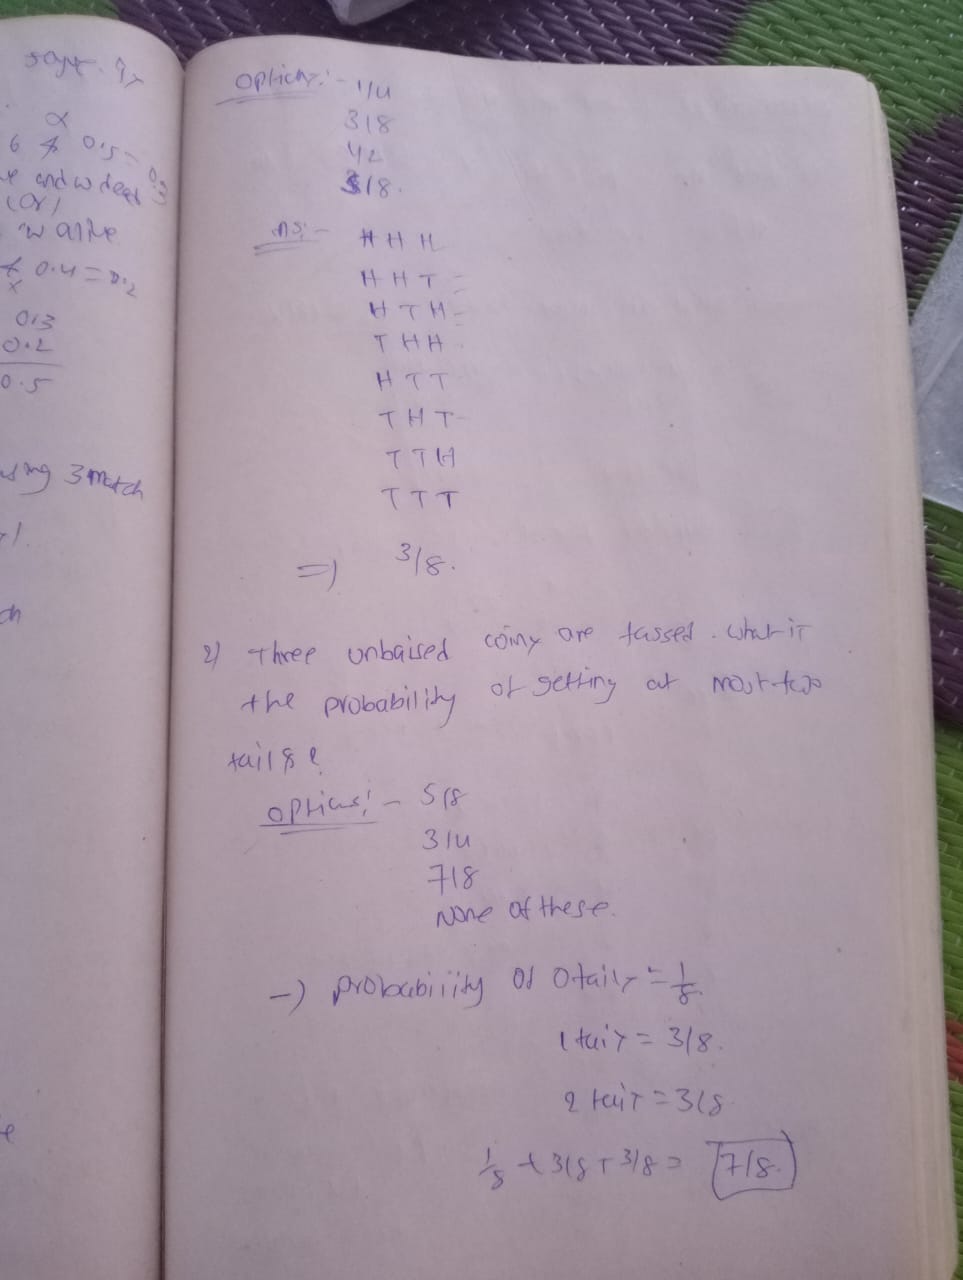 α
(or)
0.3
0.2
0.5
3 match
options:-
1/4
3/8
1/2
3/8.
Ans:- H H H
H H T
H T H
T H H
H T T
T H T
T T H
T T T
=) 3/8.
2) Three unbaised coins are tossed. What is
the probability of getting at most two
tails?
options:- 5/8
3/4
7/8
None of these.
-) probability of 0 tails = 1/8.
1 tail = 3/8.
2 tail = 3/8
1/8 + 3/8 + 3/8 = 7/8.